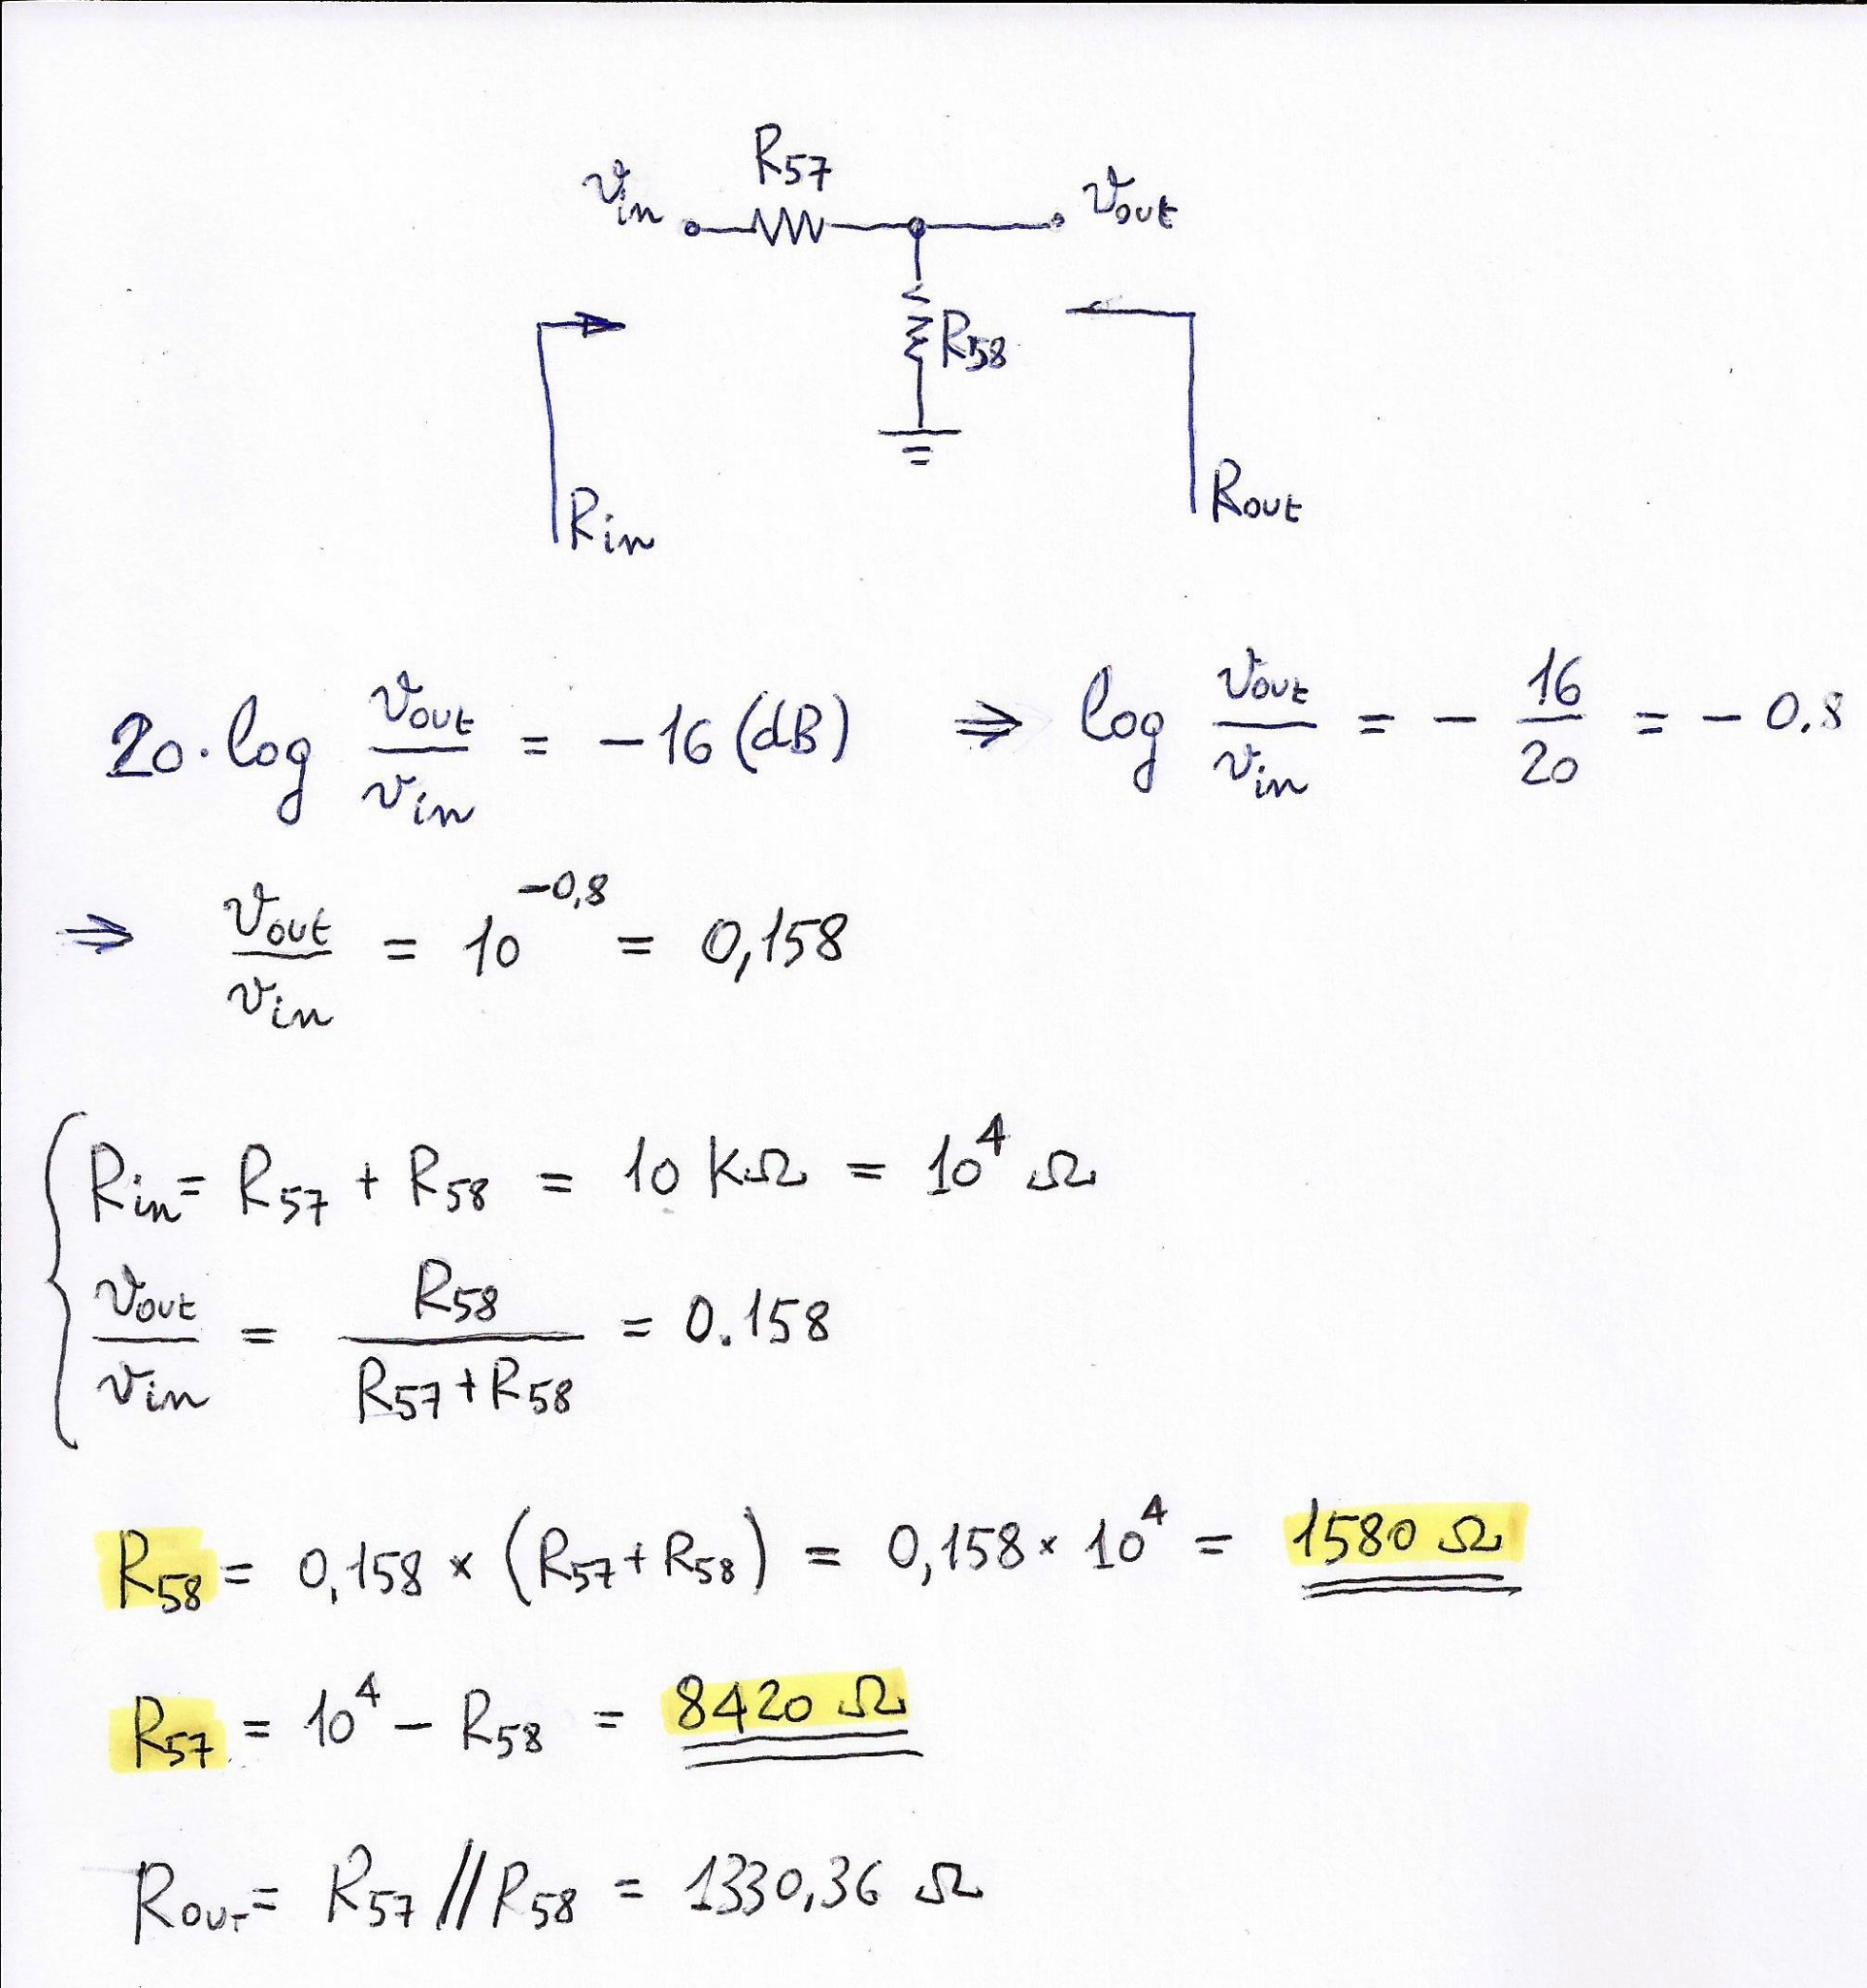 R57
vin
vout
R58
Rin
Rout
20·log vout/vin = -16 (dB) ⇒ log vout/vin = - 16/20 = -0.8
⇒ vout/vin = 10^-0,8 = 0,158
Rin = R57 + R58 = 10 KΩ = 10^4 Ω
vout/vin = R58/(R57+R58) = 0.158
R58 = 0,158 × (R57+R58) = 0,158 × 10^4 = 1580 Ω
R57 = 10^4 - R58 = 8420 Ω
Rout = R57 // R58 = 1330,36 Ω